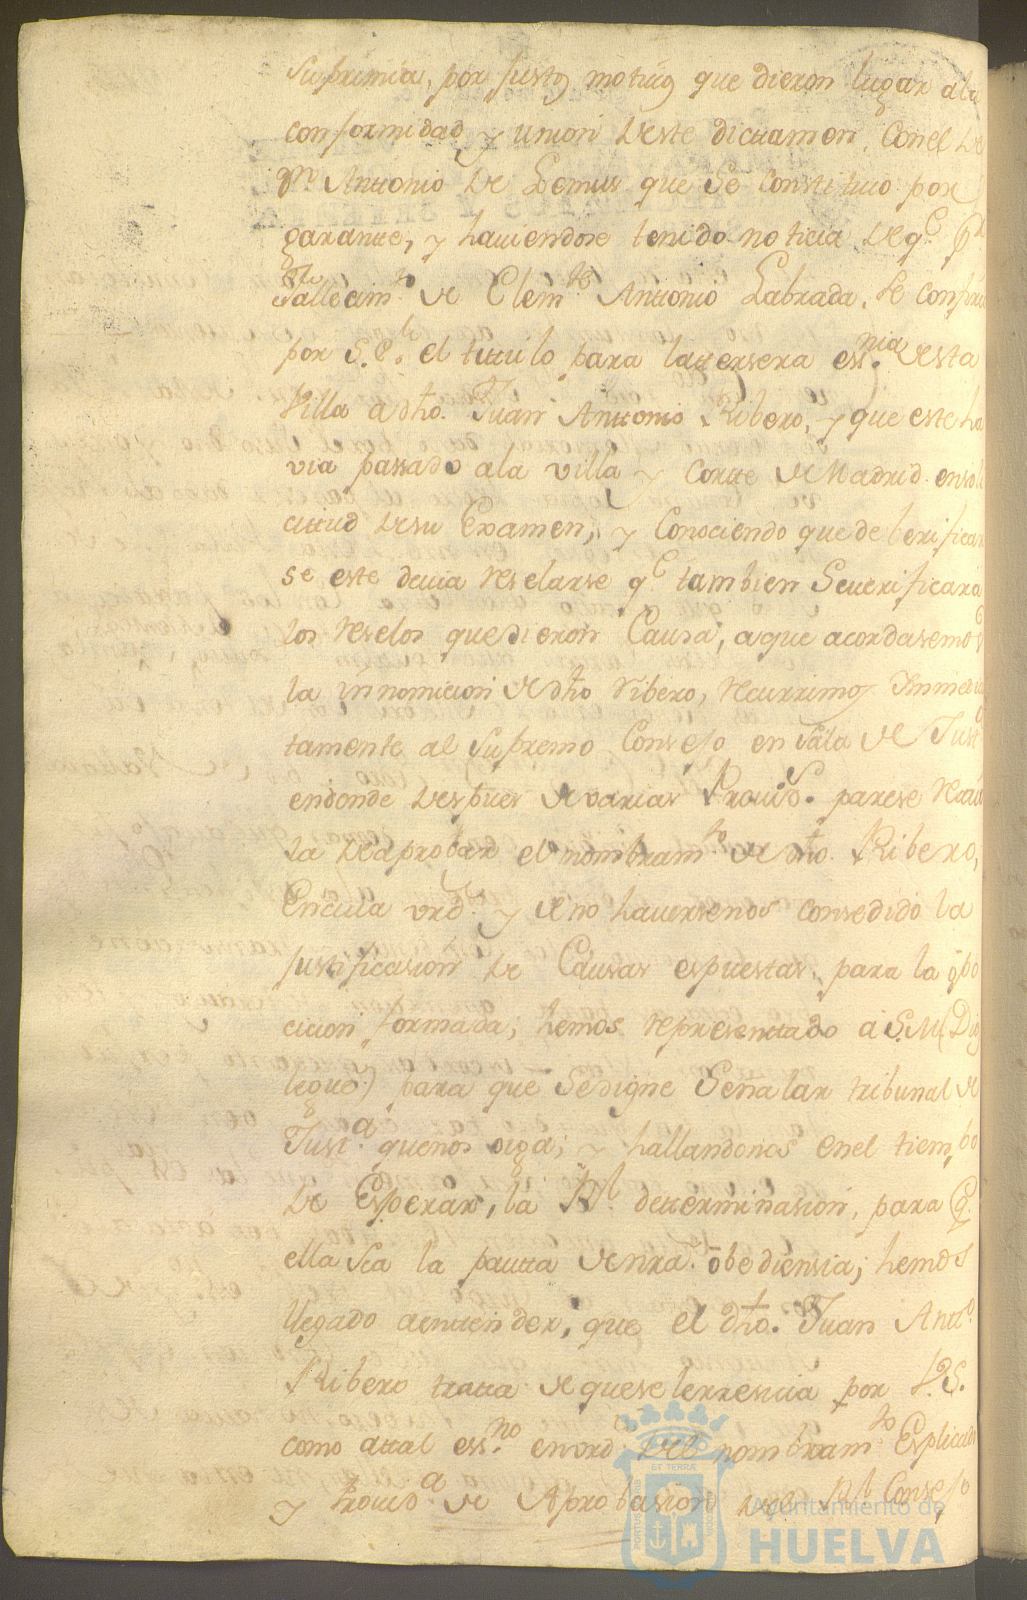 Suprimia, por justos motiuos que dieron lugar ala
conformidad y union deste dictamen, conel de
Dn. Antonio de Lemus que se constituio por
garante, y hauiendose tenido noticia de q.e pr
Fallecim.to de Clem.te Antonio Labrada, se confirio
por S.E. el titulo para la tersera ess.nia desta
Villa a dho. Juan Antonio Ribero, y que este ha
via passado ala villa y Corte de Madrid ensoli
citud desu Examen, y Conociendo que de berificar
se este deuia reselarse q.e tambien Seuerificara
los reselos quedieron Causa, aque acordasemos
la innomicion de dho Ribero, recurrimos Inmedia
tamente al Supremo Consejo en Sala de Just.a
endonde despues de varias Prouid.s parese
la desaprobar el nombram.to de dho. Ribero,
y de no hauersenos consedido la
justificasion de Causas espuestas, para la opo
cicion formada; hemos representado a S.M.(Dios
legue) para que Sedigne Señalar tribunal de
Just.a quenos oiga; y hallandonos enel tiempo
de Esperar, la Rl. determinasion, para q.
ella Sea la pauta de nra. obediensia; hemos
llegado aentender, que el dho. Juan Ant.o
Ribero trata de quese lerresiua por V.S.
como atal ess.no envrd del nombram.to Esplicado
y Proued.a de Aprobasion del Rl. Consejo
ET TERRA
Ayuntamiento de
HUELVA